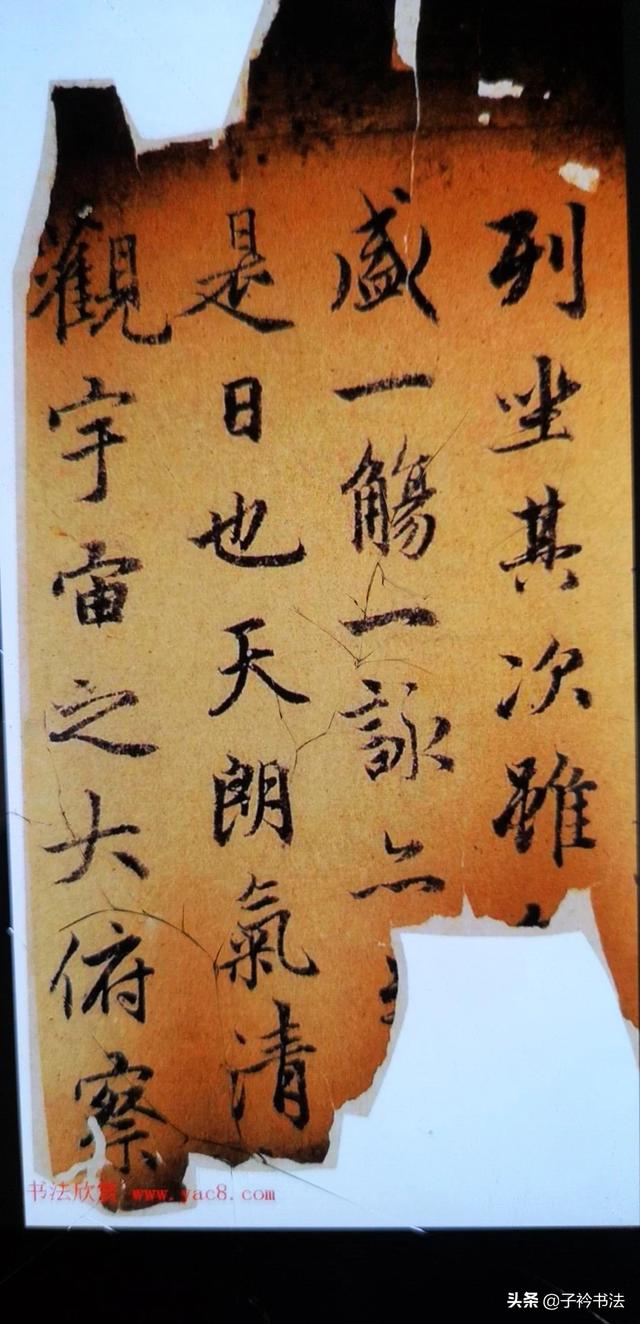 列坐其次雖
盛一觴一詠亦
是日也天朗氣清
觀宇宙之大俯察
书法欣赏 www.yac8.com
头条 @子衿书法